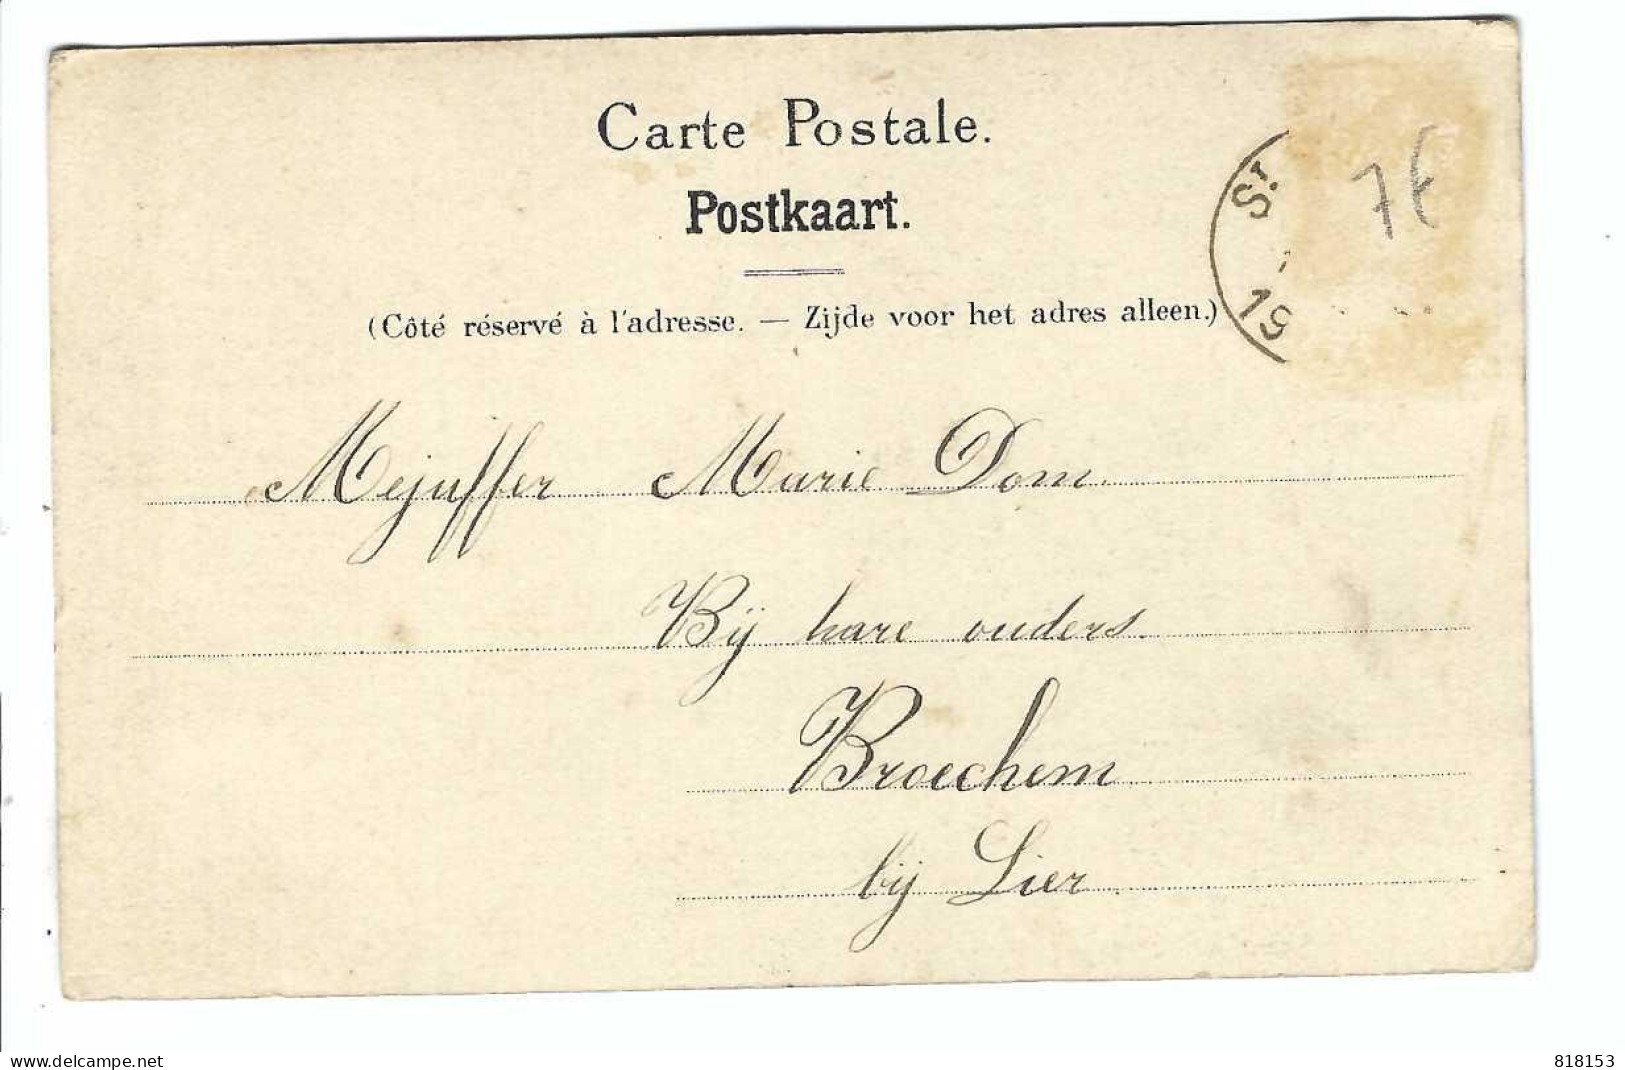 Carte Postale.
Postkaart.
(Côté réservé à l'adresse. — Zijde voor het adres alleen.)
St
19
7€
Mejuffer Marie Dom.
Bÿ hare ouders.
Broechem
bÿ Lier.
www.delcampe.net
818153